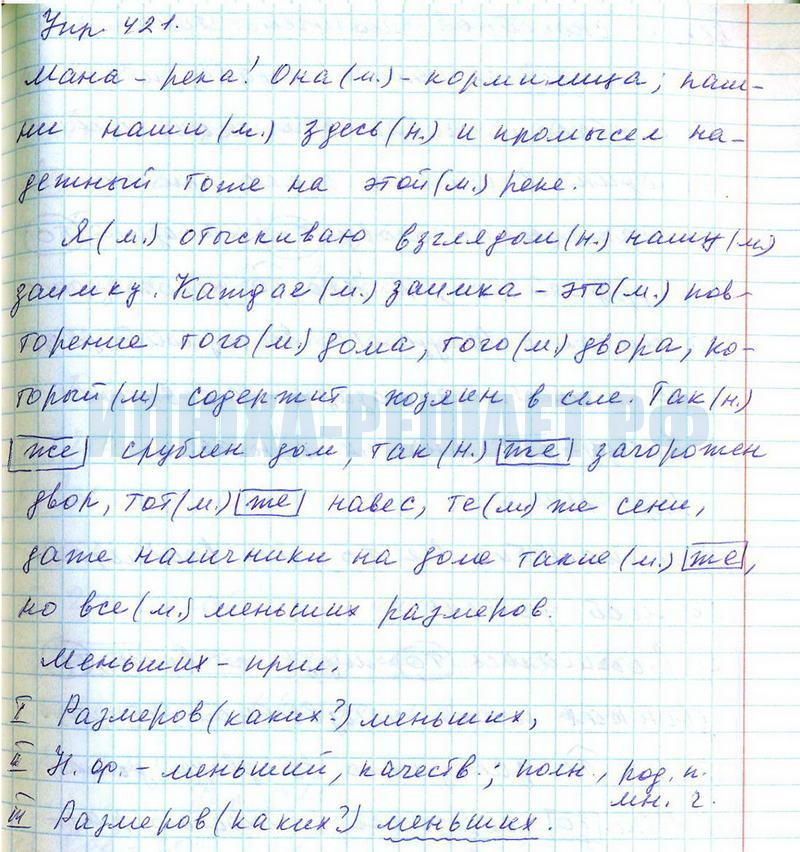 Упр. 421.
Мана - река! Она (м.) - кормилица; паш-
ни наши (м.) здесь (н.) и промысел на-
дежный тоже на этой (м.) реке.
Я (м.) отыскиваю взглядом (н.) нашу (м.)
заимку. Каждая (м.) заимка - это (м.) пов-
торение того (м.) дома, того (м.) двора, ко-
торый (м) содержит хозяин в селе. Так (н.)
же срублен дом, так (н.) же загорожен
двор, тот (м.) же навес, те (м.) же сени,
даже наличники на доме такие (м.) же,
но все (м.) меньших размеров.
Меньших - прил.
I Размеров (каких?) меньших,
II Н. ф. - меньший, качеств.; полн., род. п.
мн. ч.
III Размеров (каких?) меньших.
ИДЕНЬКА-РЕШАЕТ.РФ